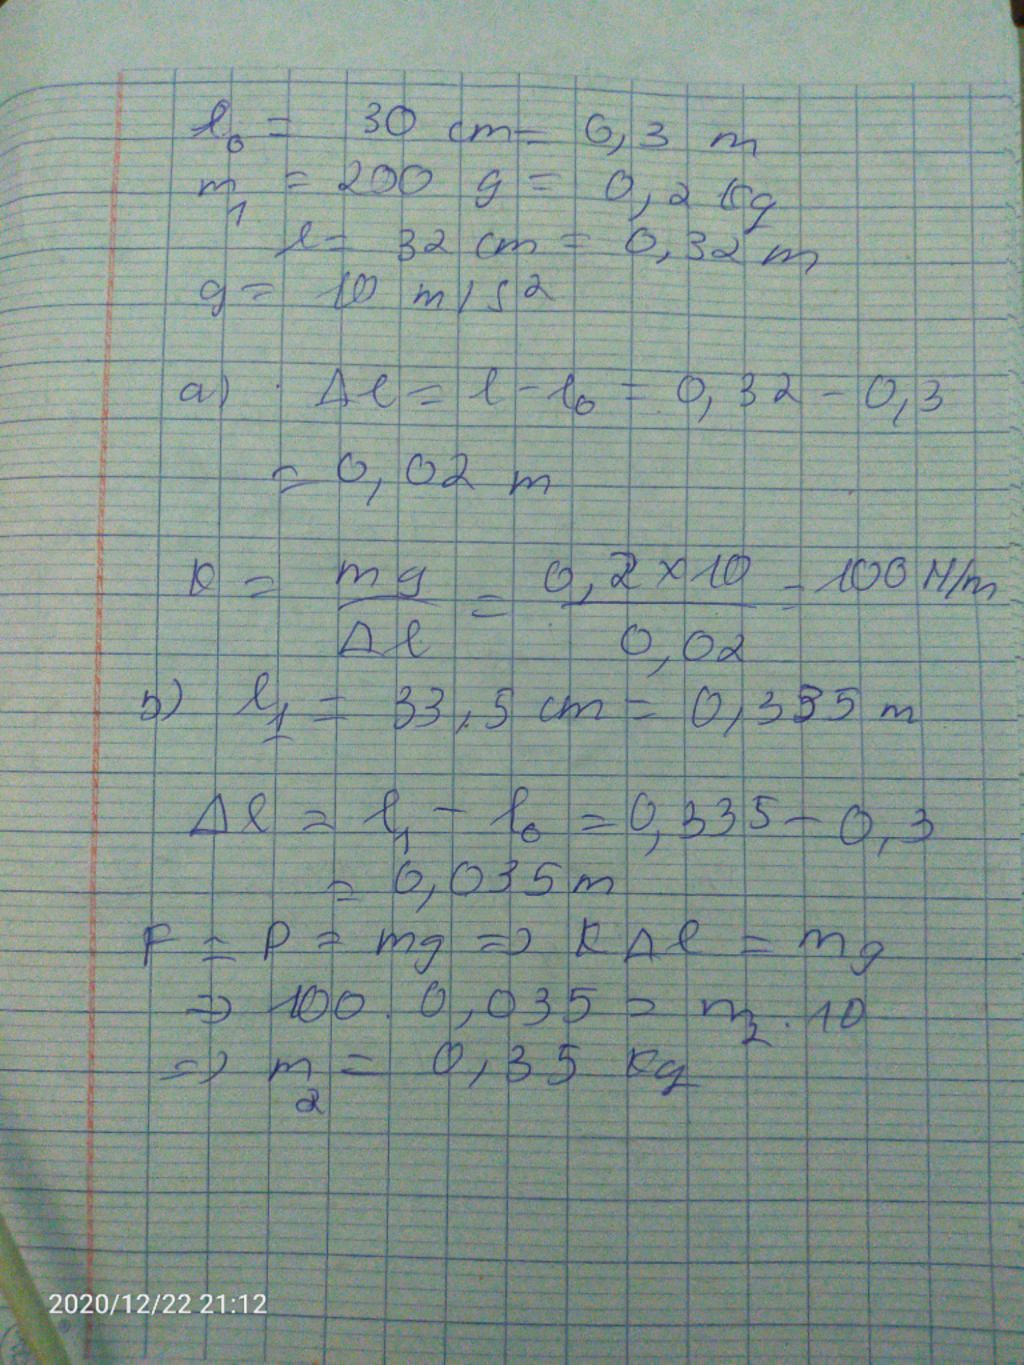 l₀ = 30 cm = 0,3 m
m₁ = 200 g = 0,2 Kg
l = 32 cm = 0,32 m
g = 10 m/s²
a) Δl = l - l₀ = 0,32 - 0,3
= 0,02 m
K = mg/Δl = 0,2×10/0,02 = 100 N/m
b) l₁ = 33,5 cm = 0,335 m
Δl = l₁ - l₀ = 0,335 - 0,3
= 0,035 m
F = P = mg => KΔl = mg
=> 100 . 0,035 = m₂ . 10
=> m₂ = 0,35 Kg
2020/12/22 21:12